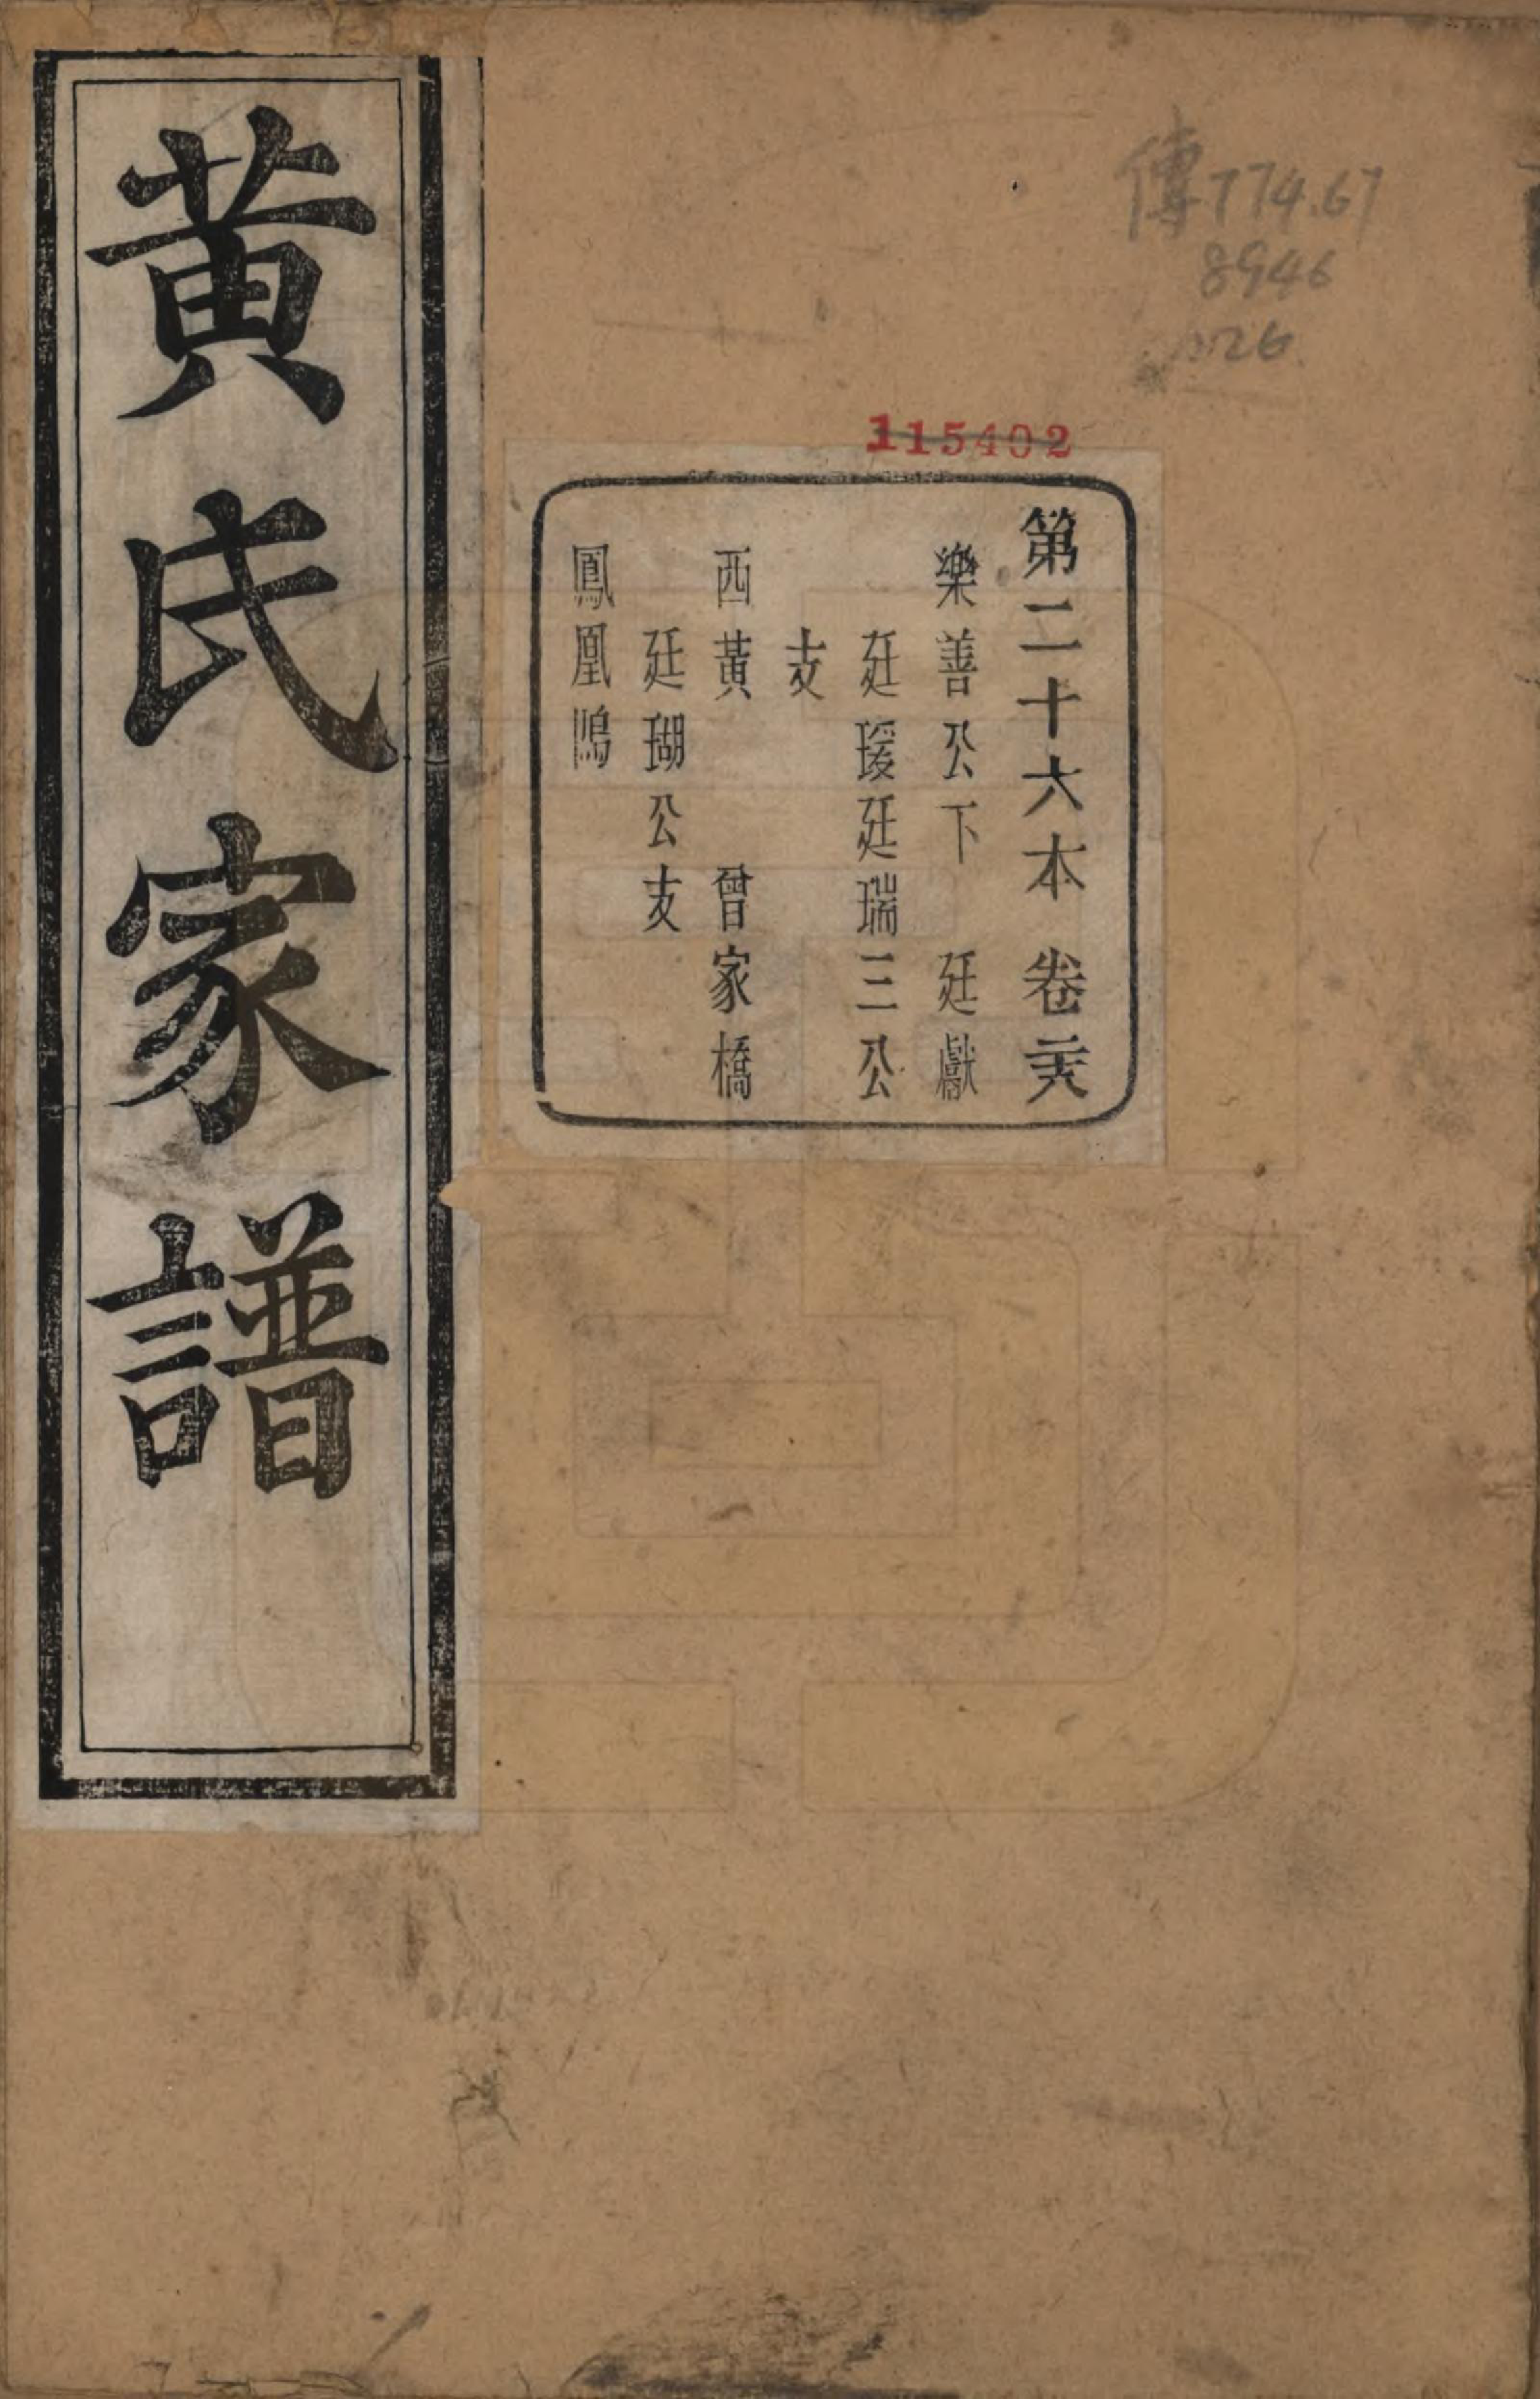 傳774.67
8946
:26
115402
第二十六本 卷二六
樂善公下 廷獻
廷瑗廷瑞三公
支
西黃 曾家橋
廷瑚公支
鳳凰隝
黄氏家譜